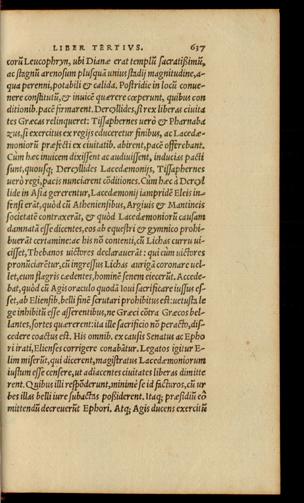 LIBER TERTIVS. 637
corũ Leucophryn, ubi Dianæ erat templũ sacratißimũ,
ac stagnũ arenosum plusquã unius stadij magnitudine, a-
qua perenni, potabili & calida. Postridie in locũ conue-
nere constitutũ, & inuicẽ quærere cœperunt, quibus con
ditionib. pacẽ firmarent. Dercyllides, si rex liberas ciuita
tes Græcas relinqueret: Tissaphernes uerò & Pharnaba
zus, si exercitus ex regijs educeretur finibus, ac Lacedæ-
moniorũ præfecti ex ciuitatib. abirent, pacẽ offerebant.
Cùm hæc inuicem dixissent ac audiuissent, inducias pacti
sunt, quousq; Dercyllides Lacedæmonijs, Tissaphernes
uerò regi, pacis nunciarent cõditiones. Cùm hæc à Dercyl
lide in Asia gererentur, Lacedæmonij iampridẽ Eleis in-
fensi erãt, quòd cũ Atheniensibus, Argiuis & Mantineis
societatẽ contraxerãt, & quòd Lacedæmoniorũ causam
damnatã esse dicentes, eos ab equestri & gymnico prohi-
buerãt certamine: ac his nõ contenti, cũ Lichas curru ui-
cisset, Thebanos uictores declarauerãt: qui cùm uictores
pronunciarẽtur, cũ ingressus Lichas aurigã coronare uel-
let, eum flagris cædentes, hominẽ senem eiecerũt. Accede-
bat, quòd cũ Agis oraculo quodã Ioui sacrificare iussus es-
set, ab Eliensib. belli finẽ scrutari prohibitus est: uetusta le
ge inhibitũ esse asserentibus, ne Græci cõtra Græcos bel-
lantes, sortes quærerent: ita ille sacrificio nõ peracto, dis-
cedere coactus est. His omnib. ex causis Senatus ac Epho
ri irati, Elienses corrigere conabãtur. Legatos igitur E-
lim miserũt, qui dicerent, magistratus Lacedæmoniorum
iustum esse censere, ut adiacentes ciuitates liberas dimitte
rent. Quibus illi respõderunt, minimè se id facturos, cũ ur
bes illas belli iure subactas poßiderent. Itaq; præsidiũ eò
mittendũ decreuerũt Ephori. Atq; Agis ducens exercitũ